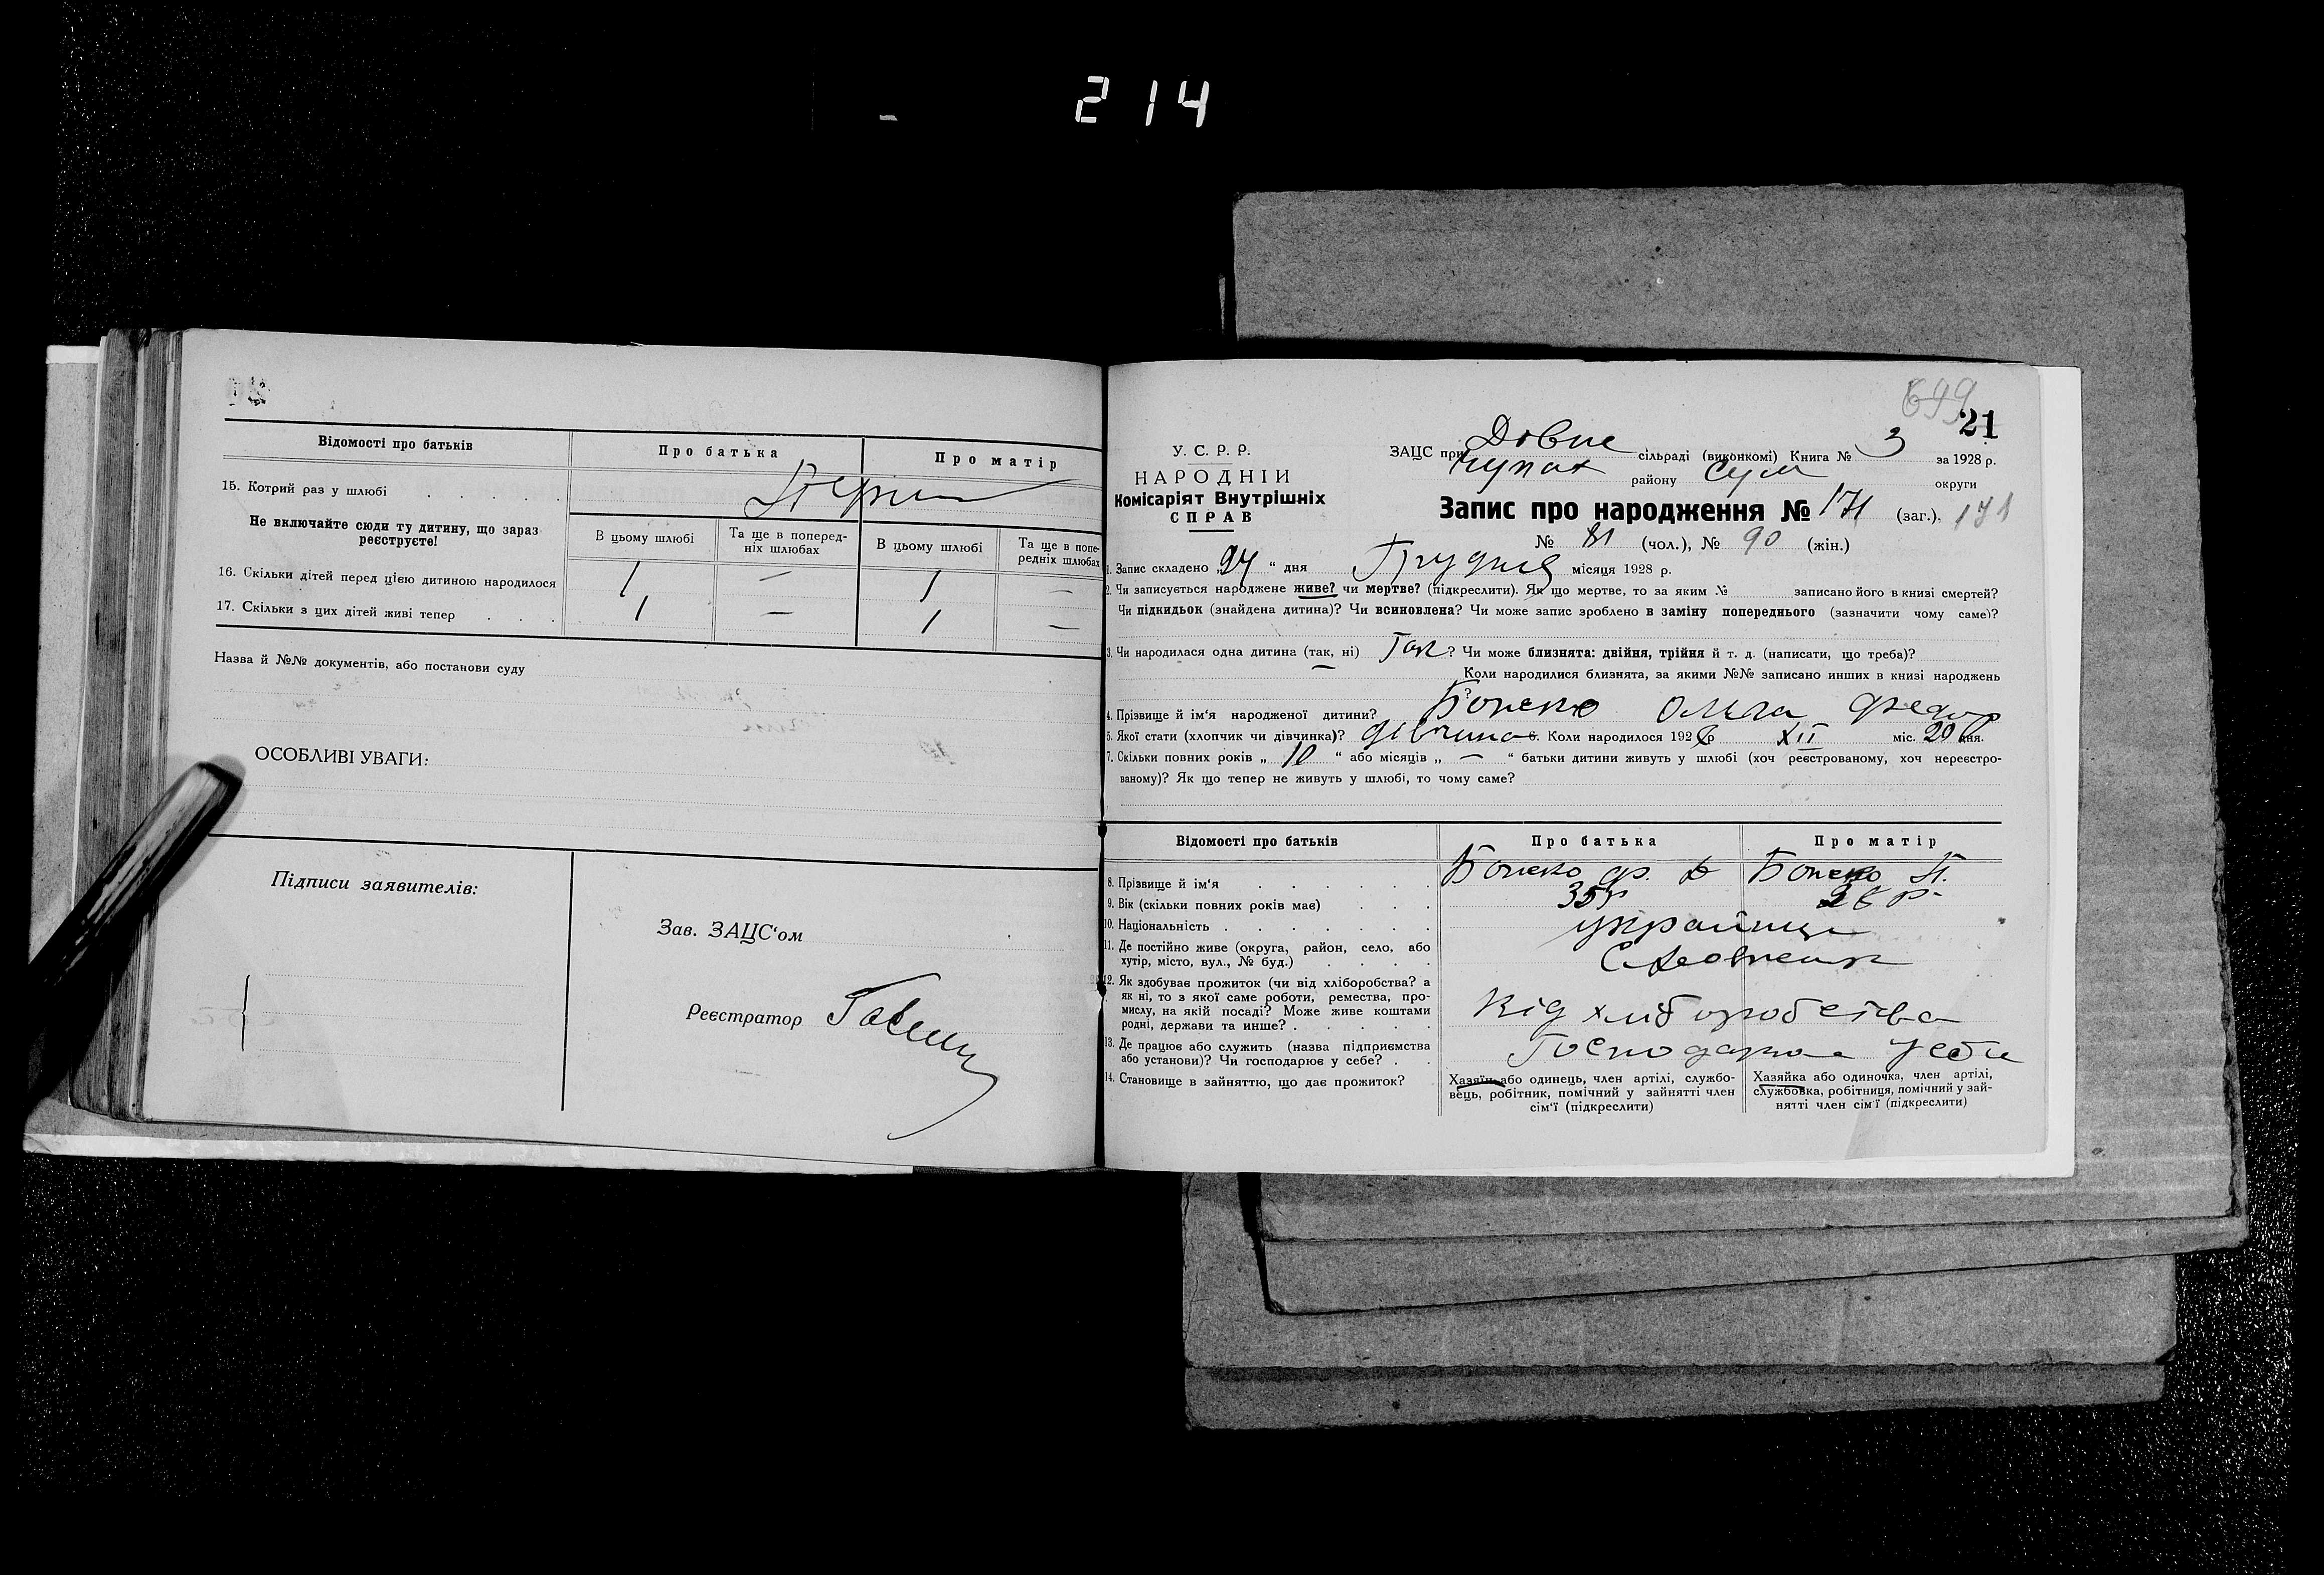 214
Відомості про батьків
Про батька
Про матір
15. Котрий раз у шлюбі
Не включайте сюди ту дитину, що зараз реєструєте!
В цьому шлюбі
Та ще в попередніх шлюбах
В цьому шлюбі
Та ще в попередніх шлюбах
16. Скільки дітей перед цією дитиною народилося 1 — 1 —
17. Скільки з цих дітей живі тепер 1 — 1 —
Назва й №№ документів, або постанови суду
ОСОБЛИВІ УВАГИ:
Підписи заявителів:
Зав. ЗАЦС‘ом
Реєстратор
699
21
У. С. Р. Р.
НАРОДНІЙ
Комісаріят Внутрішніх
СПРАВ
ЗАЦС при сільраді (виконкомі) Книга № 3 за 1928 р.
району Сум округи
Запис про народження № 171 (заг.), 171
№ 81 (чол.), № 90 (жін.)
1. Запис складено „24“ дня Грудня місяця 1928 р.
2. Чи записується народжене живе? чи мертве? (підкреслити). Як що мертве, то за яким № записано його в книзі смертей?
Чи підкидьок (знайдена дитина)? Чи всиновлена? Чи може запис зроблено в заміну попереднього (зазначити чому саме)?
3. Чи народилася одна дитина (так, ні) Так? Чи може близнята: двійня, трійня й т. д. (написати, що треба)?
— Коли народилися близнята, за якими №№ записано инших в книзі народжень
?
4. Прізвище й ім‘я народженої дитини? Ольга Федор
5. Якої стати (хлопчик чи дівчинка)? дівчина 6. Коли народилося 192 р XII міс. 20 дня.
7. Скільки повних років „10“ або місяців „—“ батьки дитини живуть у шлюбі (хоч реєстрованому, хоч нереєстрованому)? Як що тепер не живуть у шлюбі, то чому саме?
Відомості про батьків
Про батька
Про матір
8. Прізвище й ім‘я
9. Вік (скільки повних років має) 35 р 26 р
10. Національність українці
11. Де постійно живе (округа, район, село, або
хутір, місто, вул., № буд.)
12. Як здобуває прожиток (чи від хліборобства? а
як ні, то з якої саме роботи, ремества, промислу, на якій посаді? Може живе коштами
родні, держави та инше?
Від хліборобства
13. Де працює або служить (назва підприємства
або установи)? Чи господарює у себе?
Господарює у себе
14. Становище в зайняттю, що дає прожиток?
Хазяїн або одинець, член артілі, службовець, робітник, помічний у зайнятті член
сім‘ї (підкреслити)
Хазяйка або одиночка, член артілі,
службовка, робітниця, помічний у зайнятті член сім‘ї (підкреслити)